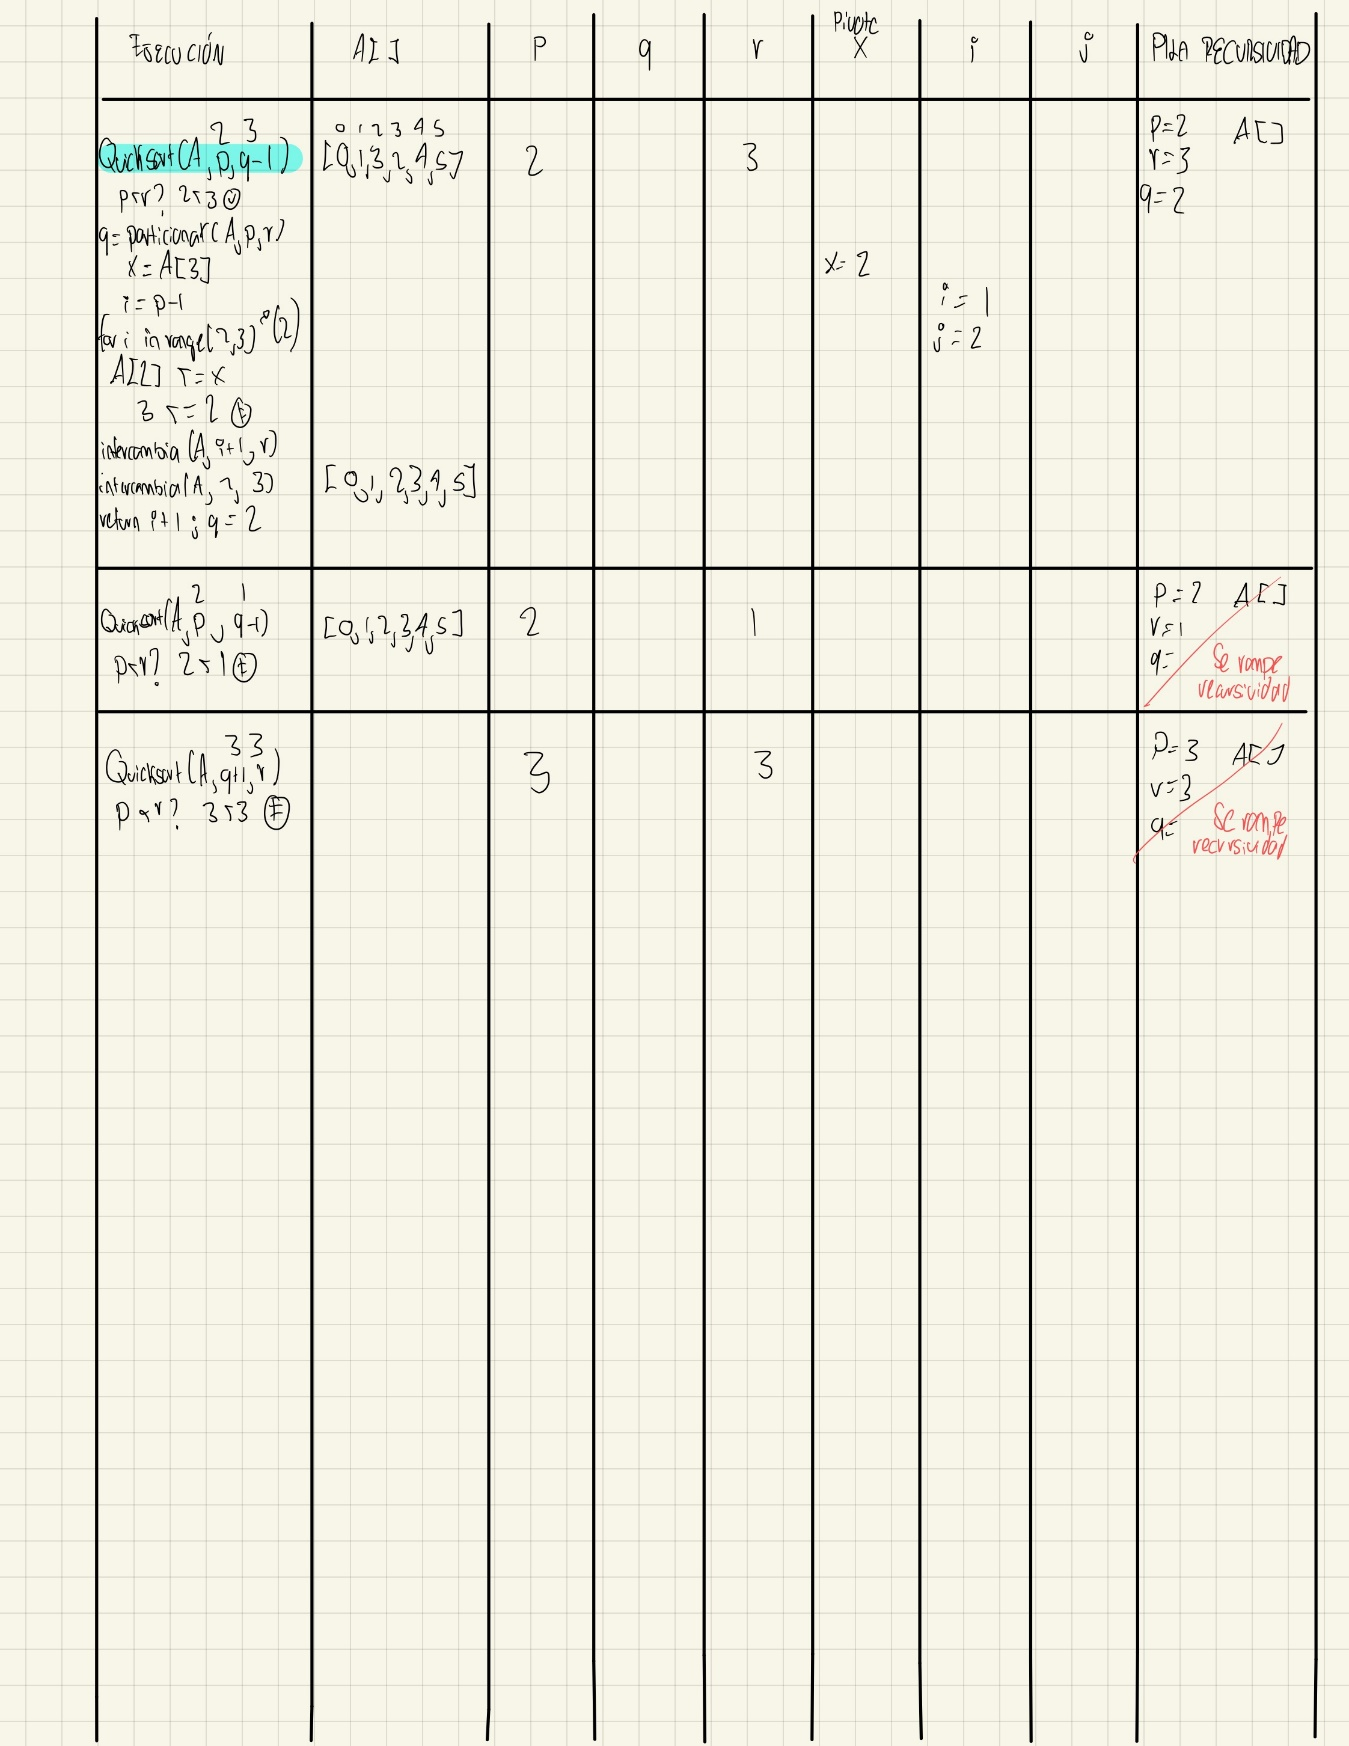 EJECUCIÓN A[] P q r Pivote X i j PILA RECURSIVIDAD
2 3
Quicksort(A, p, q-1)
p<r? 2<3 V
q= particionar(A, p, r)
x = A[3]
i = p-1
for i in range(2,3) j(2)
A[2] <= x
3 <= 2 F
intercambia (A, i+1, r)
intercambia(A, 2, 3)
return i+1 ; q = 2
0 1 2 3 4 5
[0,1,3,2,4,5]
[0,1,2,3,4,5]
2
3
x= 2
i = 1
j = 2
p=2 A[]
r=3
q=2
2 1
Quicksort(A, p, q-1)
p<r? 2<1 F
[0,1,2,3,4,5]
2
1
P=2 A[]
r=1
q=
Se rompe
recursividad
3 3
Quicksort(A, q+1, r)
p<r? 3<3 F
3
3
P=3 A[]
r=3
q=
Se rompe
recursividad